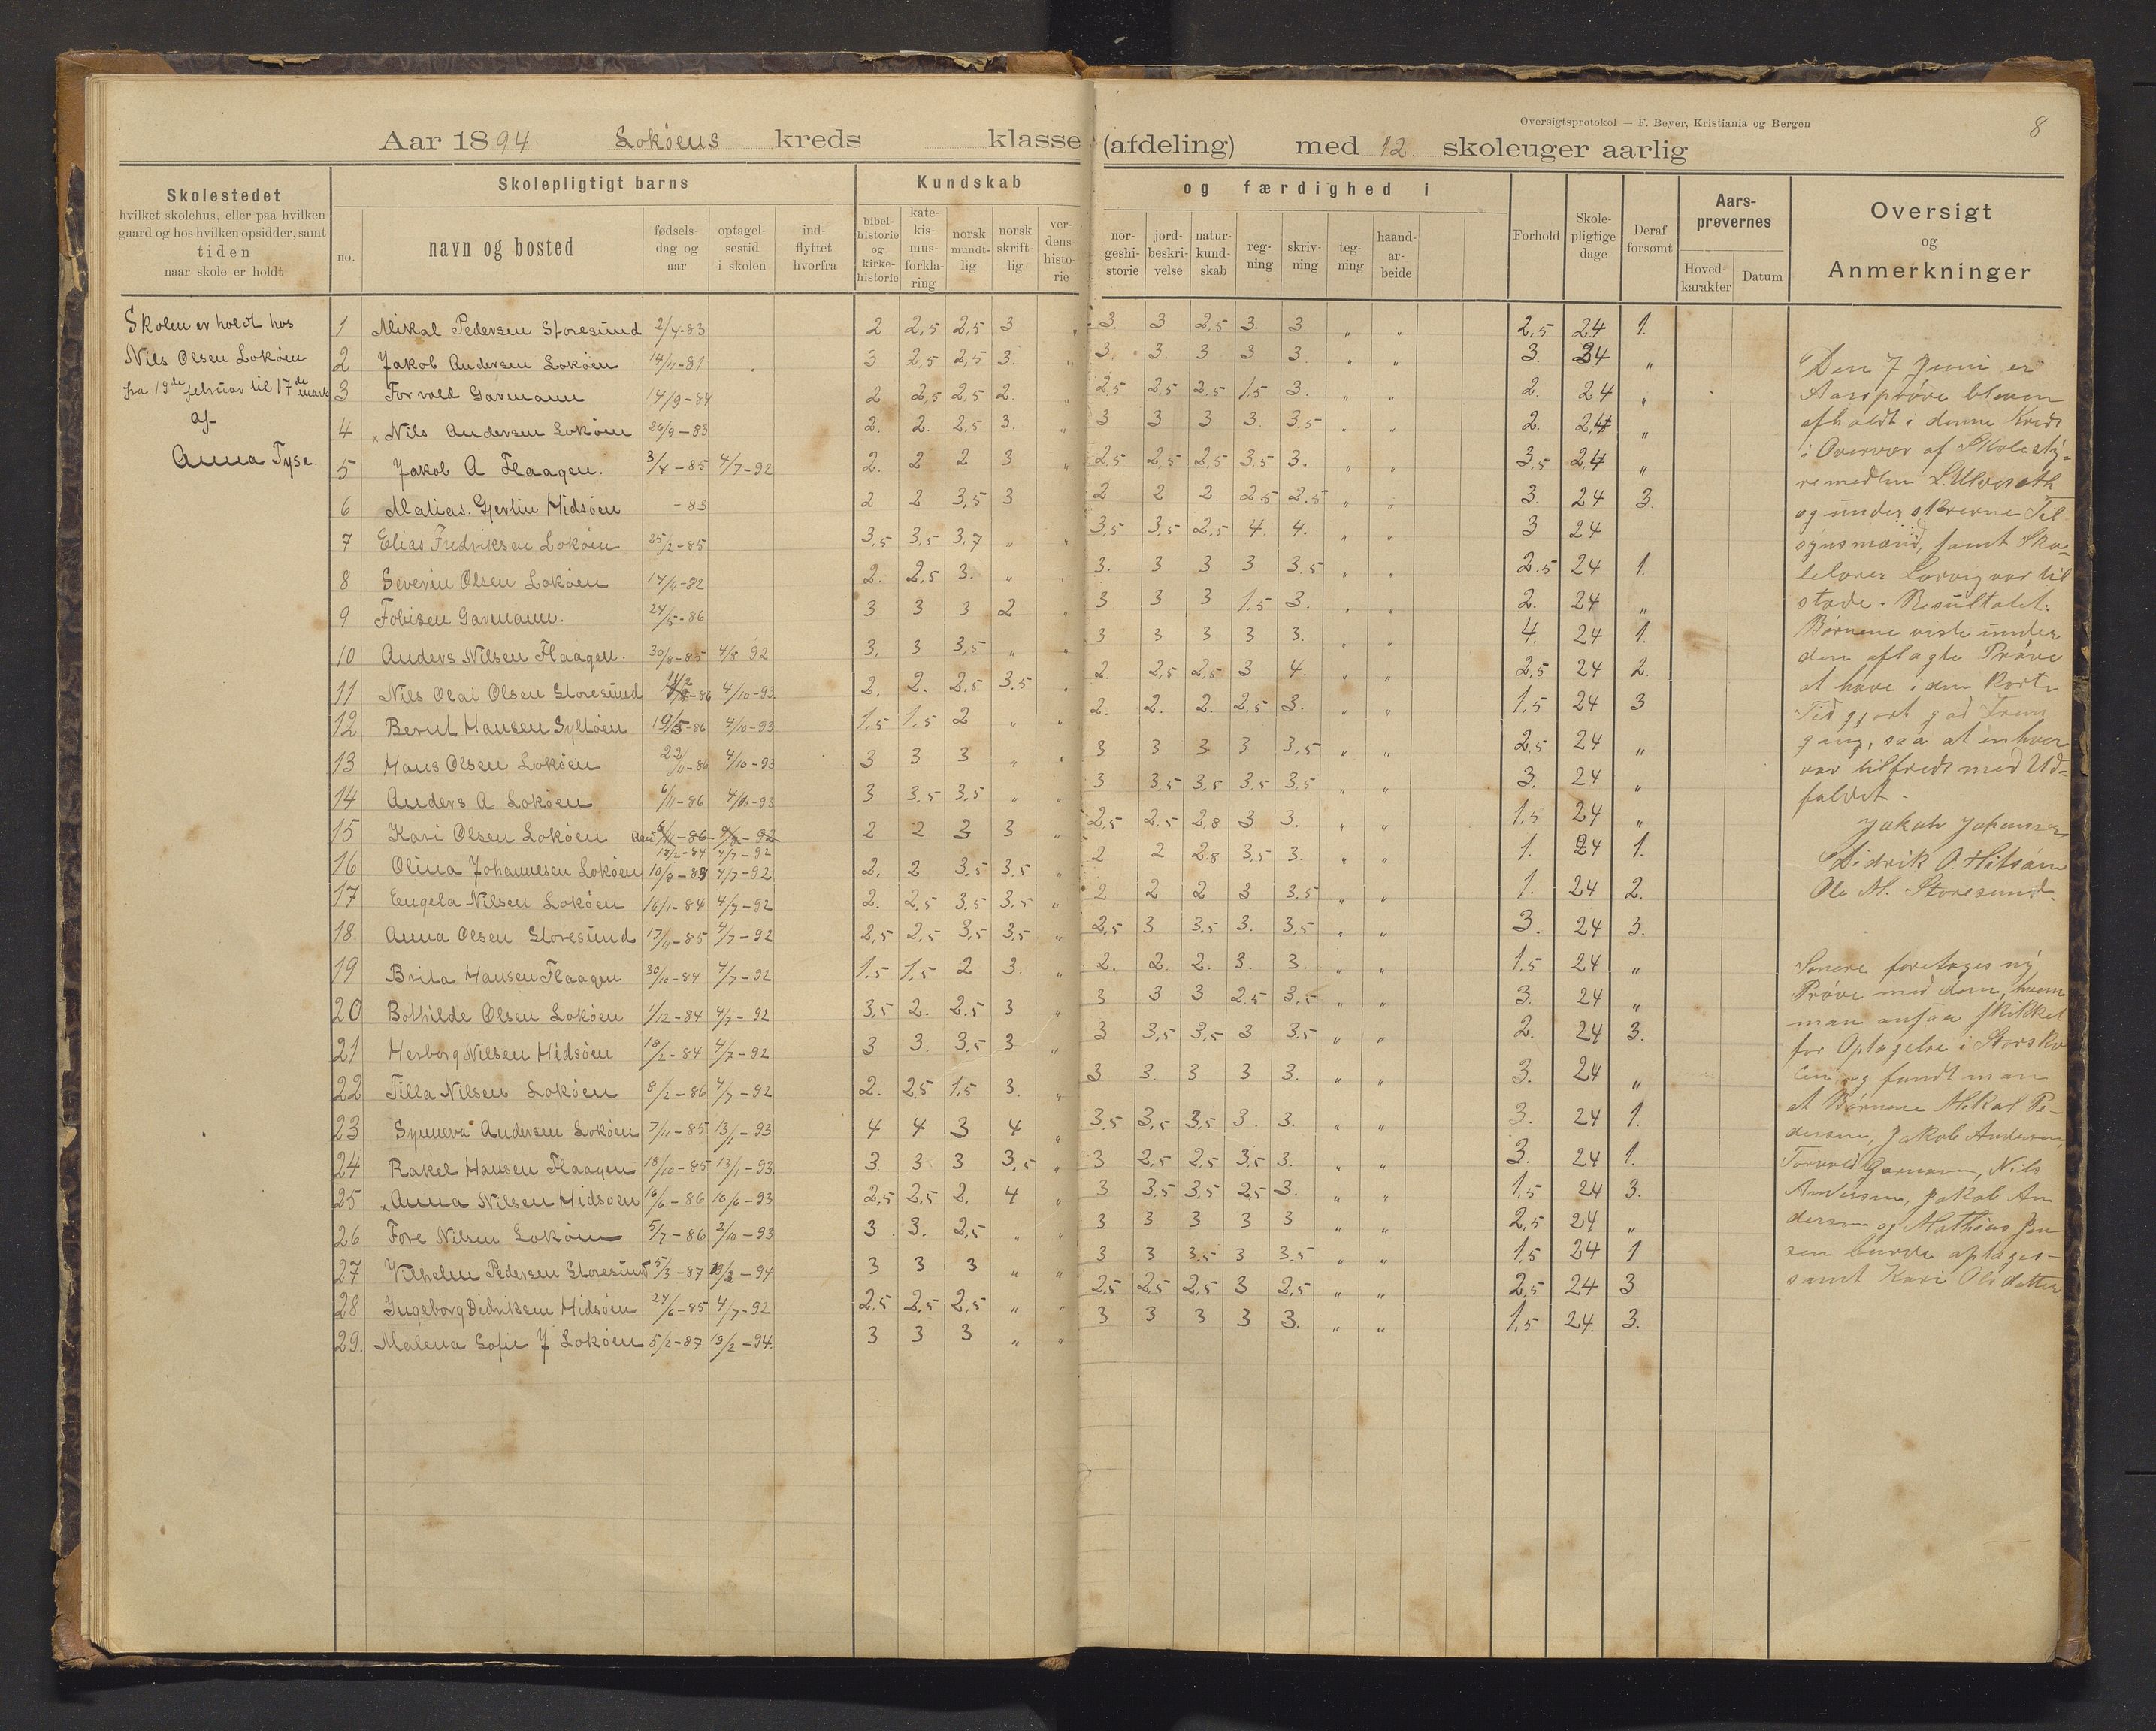 Oversigtsprotokol — F. Beyer, Kristiania og Bergen
8
Aar 1894 Lokøens kreds klasse (afdeling) med 12 skoleuger aarlig
Skolestedet
hvilket skolehus, eller paa hvilken
gaard og hos hvilken opsidder, samt
tiden
naar skole er holdt
Skolepligtigt barns
no.
navn og bosted
fødsels-
dag og
aar
optagel-
sestid
i skolen
ind-
flyttet
hvorfra
Kundskab og færdighed i
bibel-
historie
og
kirke-
historie
kate-
kis-
mus-
forkla-
ring
norsk
mundt-
lig
norsk
skrift-
lig
ver-
dens-
histo-
rie
nor-
geshi-
storie
jord-
beskri-
velse
natur-
kund-
skab
reg-
ning
skriv-
ning
teg-
ning
haand-
ar-
beide
Forhold
Skole-
pligtige
dage
Deraf
forsømt
Aars-
prøvernes
Hoved-
karakter
Datum
Oversigt
og
Anmerkninger
Skolen er holdt hos
Nils Olsen Lokøen
fra 19de februar til 17de marts
af
Anna Tyse.
1 Mikal Pedersen Storesund 2/4-83 2 2,5 2,5 3 " 3. 3 2,5 3. 3 " " 2,5 24 1.
2 Jakob Andersen Lokøen 14/11-81 3 2,5 2,5 3. " 3. 3. 3 3 3. " " 3. 24 "
3 Torvald Garmann 14/9-84 2 2,5 2,5 2. " 2,5 2,5 2,5 1,5 3. " " 2. 24 "
4 x Nils Andersen Lokøen 26/9-83 2. 2. 2,5 3. " 3 3 3 3. 3,5 " " 2. 24 "
5 Jakob A Flaagen. 3/4-85 4/7-92 2. 2 2 3 " 2,5 2,5 2,5 3,5 3. " " 3,5 24 "
6 Matias. Gjertin Hidsøen -83 2 2 3,5 3 2 2 2. 2,5 2,5 " " 3. 24 3.
7 Elias Fredriksen Lokøen 25/2-85 3,5 3,5 3,7 " " 3,5 3,5 2,5 4. 4. " " 3 24
8 Severin Olsen Lokøen 14/10-82 2. 2,5 3. " " 3. 3 3 3 3.5 " " 2.5 24 1.
9 Tobisen Garmann. 24/5-86 3 3 3 2 " 3 3 3 1.5 3. " " 2. 24 "
10 Anders Nilsen Flaagen. 30/8-85 4/8 92 3. 3 3,5 " " 3 3 3 3 3. " " 4. 24 1.
11 Nils Olai Olsen Storesund -86 4/10-93. 2. 2. 2,5 3,5 " 2. 2,5 2,5 3 4. " " 2,5 24 2.
12 Bernt Hansen Sylløen 19/5-86 4/10-93 1,5 1,5 2 " " 2. 2. 2. 2,5 3. " " 1,5 24 3
13 Hans Olsen Lokøen 22/11-86 4/10-93 3 3 3 " " 3 3 3 3 3,5 " " 2,5 24 "
14 Anders A Lokøen 6/11-86 4/10-93 3 3,5 3,5 " " 3 3,5 3,5 3,5 3,5 " " 3. 24 "
15 Kari Olsen Lokøen 18/2-84 4/7-92 2 2 3 3 " 2,5 2,5 2,8 3 3. " " 1,5 24 "
16 Olina Johannesen Lokøen 10/8-83 4/7-92 2. 2 3.5 3.5 " 2 2 2.8 3,5 3. " " 1. 24 1.
17 Engela Nilsen Lokøen 16/1-84 4/7-92 2. 2,5 3,5 3,5 " 2 2 2 3 3,5 " " 1. 24 2.
18. Anna Olsen Storesund 17/11-85 4/7-92 2,5 2,5 3,5 3,5 " 2,5 3 3.5 3. 3,5 " " 3. 24 3.
19 Brita Hansen Flaagen 30/10-84 4/7-92 1.5 1,5 2 3. " 2. 2. 2. 3. 3. " " 1.5 24 "
20 Bothilde Olsen Lokøen 1/12-84 4/7-92 3,5 2. 2.5 3 " 3 3 3 2,5 3,5 " " 3. 24 "
21 Herborg Nilsen Hidsøen 18/2-84 4/7-92 3 3. 3.5 3 " 3 3,5 3,5 3 3.5 " " 2. 24 3.
22 Tilla Nilsen Lokøen 8/2-86 4/7-92 2. 2,5 1,5 3. " 3 3. 3 3 3. " " 3. 24 "
23 Synneva Andersen Lokøen 7/11-85 13/1-93 4 4 3 4 " 3.5 3,5 3,5 3. 3. " " 3. 24 1.
24 Rakel Hansen Flaagen 18/10-85 13/1-93. 3. 3 3 3,5 " 3 2,5 2,5 3,5 3. " " 3. 24 1.
25 x Anna Nilsen Hidsøen 16/6-86 10/6-93 2,5 2,5 2. 4 " 3 3.5 3,5 2,5 3. " " 1.5 24 3.
26 Tore Nilsen Lokøen 5/7-86 2/10-93 3. 3. 2,5 " " 3 3 3 3 3 " " 2,5 24 "
27 Vilhelm Pedersen Storesund 5/3-87 19/2-94 3 3 3 " " 3 3 3.5 3 3.5 " " 1.5 24 1
28 Ingeborg Didriksen Hidsøen 24/6-85 4/7-92 2,5 2,5 2,5 " " 2,5 2,5 2,5 3 2,5 " " 2,5 24 3
29. Malena Sofie J Lokøen 5/2-87 19/2-94. 3 3 3 " " 3 3 3 3 3. " " 1,5 24. 3.
Den 7 Juni er
Aarsprøve bleven
afholdt i denne Kreds
i Overvær af Skolesty-
remedlem
og underskrevne Til
synsmænd, samt Sko-
lelærer Lorvig var til
stede. Resultatet:
Børnene viste under
den aflagte Prøve
at have i den korte
Tid gjort god Frem
gang, saa at enhver
var tilfreds med Ud-
faldet.
Jakob Johansen
Didrik O. Hidsøen
Ole M. Storesund.
Senere foretages ny
Prøve med dem, hvem
man ansaa skikket
for Optagelse i Storsko
len og fandt man
at Børnene Mikal Pe-
dersen, Jakob Andersen,
Torvald Garmann, Nils
Andersen, Jakob An
dersen og Mathias Jen
sen burde optages -
samt Kari Olsdatter.